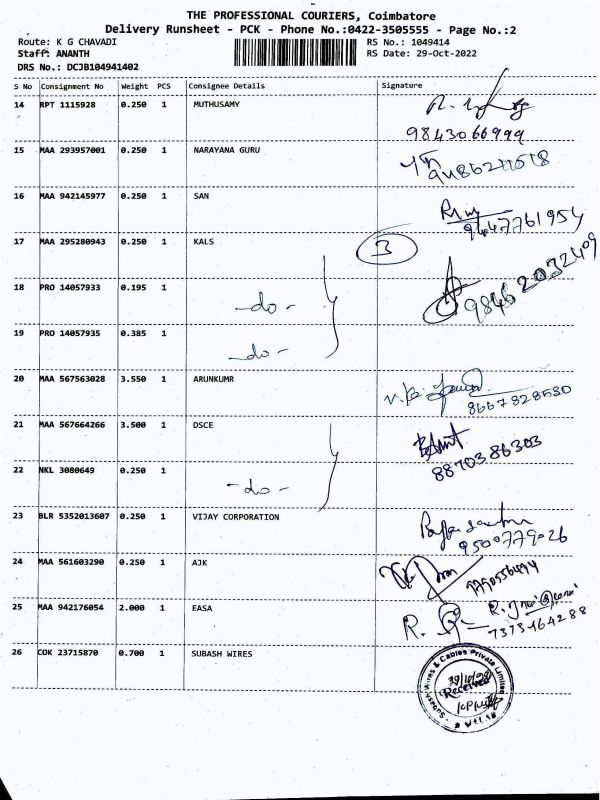 THE PROFESSIONAL COURIERS, Coimbatore
Delivery Runsheet - PCK - Phone No.:0422-3505555 - Page No.:2
Route: K G CHAVADI RS No.: 1049414
Staff: ANANTH RS Date: 29-Oct-2022
DRS No.: DCJB104941402
S No Consignment No Weight PCS Consignee Details Signature
14 RPT 1115928 0.250 1 MUTHUSAMY
9843066999
15 MAA 293957001 0.250 1 NARAYANA GURU
16 MAA 942145977 0.250 1 SAN
9447761954
17 MAA 295280943 0.250 1 KALS
3
18 PRO 14057933 0.195 1
-do-
98462032409
19 PRO 14057935 0.385 1
-do-
20 MAA 567563028 3.550 1 ARUNKUMR
8667828530
21 MAA 567664266 3.500 1 DSCE
8870386303
22 NKL 3080649 0.250 1
-do-
23 BLR 5352013607 0.250 1 VIJAY CORPORATION
9500779026
24 MAA 561603290 0.250 1 AJK
25 MAA 942176054 2.000 1 EASA
7373164288
26 COK 23715870 0.700 1 SUBASH WIRES
Subash Wires & Cables Private Limited
Received